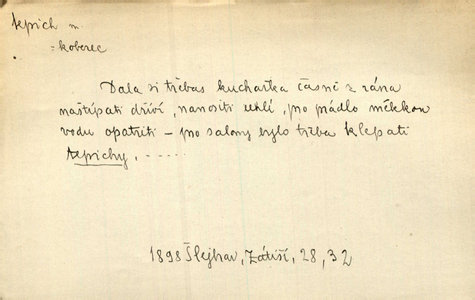 tepich m.
= koberec
Dala si třebas kuchařka časně z rána
naštípati dříví, nanositi uhlí, pro prádlo měkkou
vodu opatřiti – pro salony bylo třeba klepati
tepichy, - - - - -
1898 Šlejhar, Zátiší, 28, 32